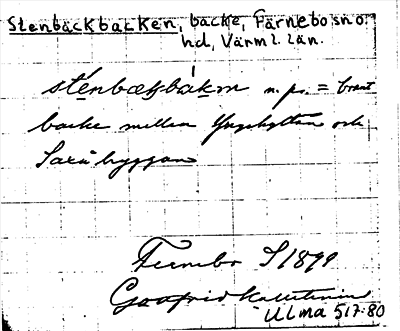 Stenbäckbacken, backe, Färnebo sn o.
hd, Värml. län.
n. pr. = brant
backe mellan Yngshyttan och
Saxåhyggan
Fernebo S 1899
Gottfrid Kallstenius
Ulma 517:80